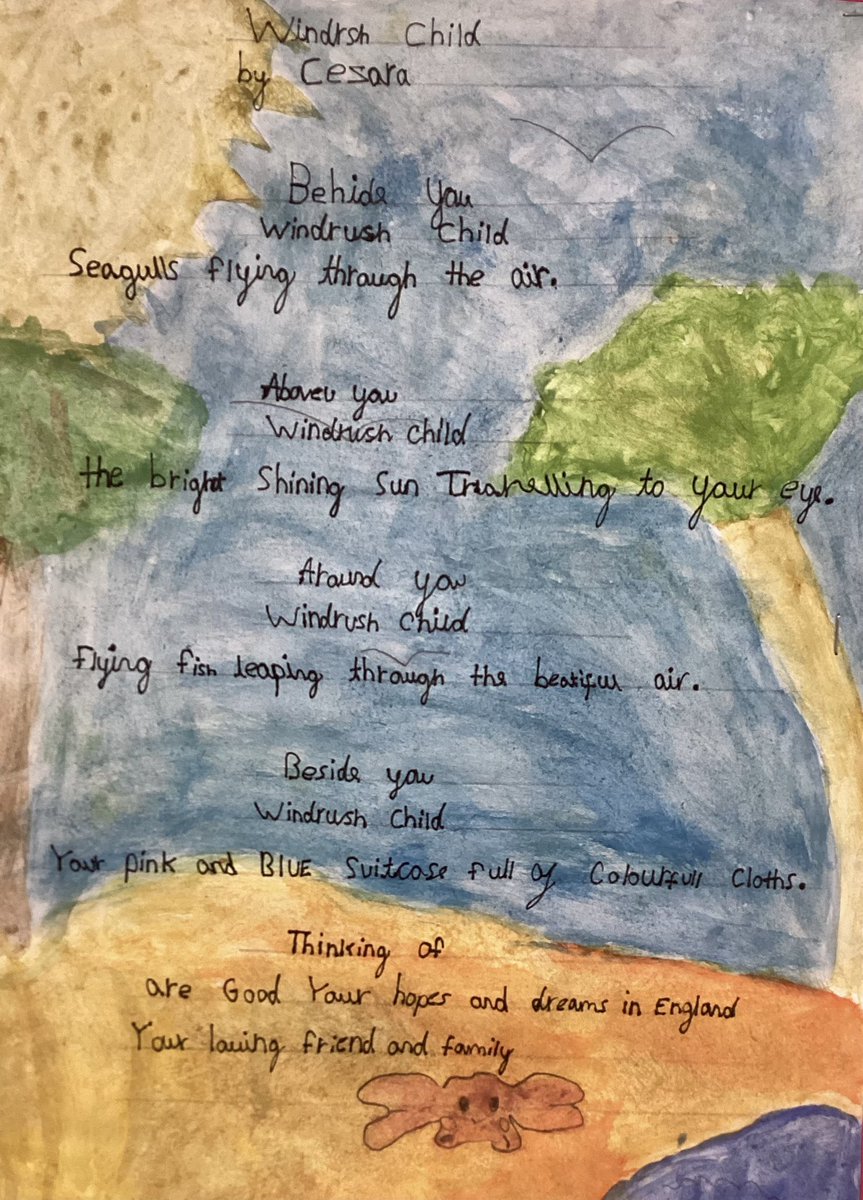 Windrsh Child
by Cesara
Behide you
Windrush Child
Seagulls flying through the air.
Above you
Windrush child
the bright Shining Sun Travelling to your eye.
Around you
Windrush Child
Flying fish leaping through the beatiful air.
Beside you
Windrush Child
Your pink and BLUE Suitcase full of Colourfull Cloths.
Thinking of
are Good Your hopes and dreams in England
Your loving friend and family